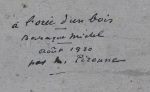 à l'orée d'un bois
Baraque Michel
Août 1920
par M. Pironne